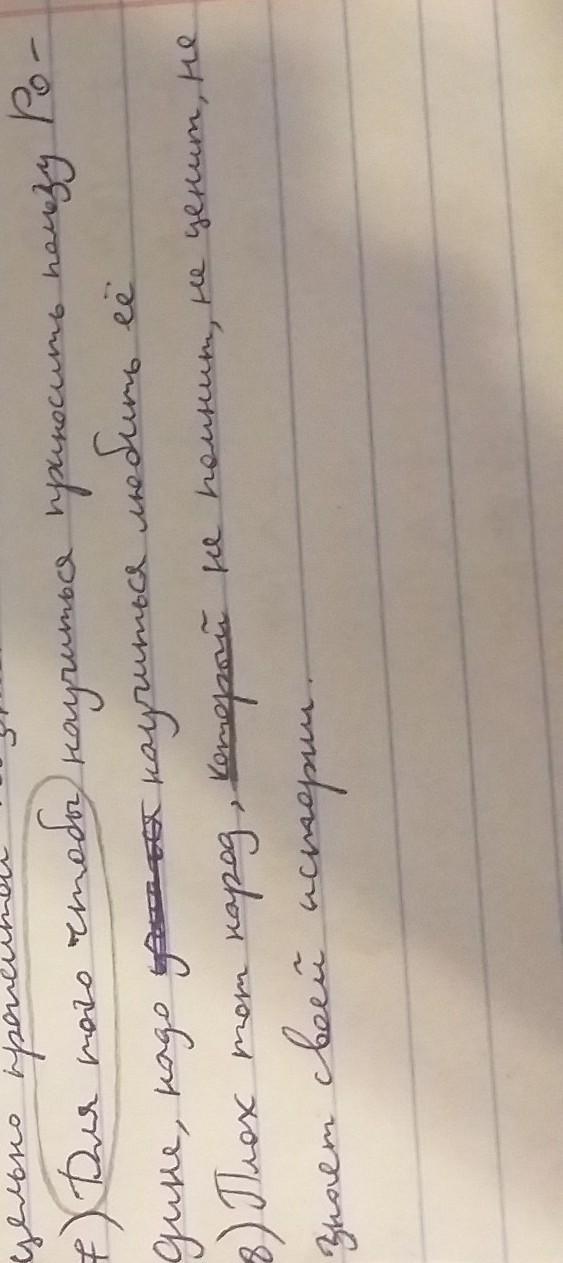 цельно прочитал
7) Для того чтобы научиться приносить пользу Ро-
дине, надо научиться любить её
8) Плох тот народ, который не помнит, не ценит, не
знает своей истории.